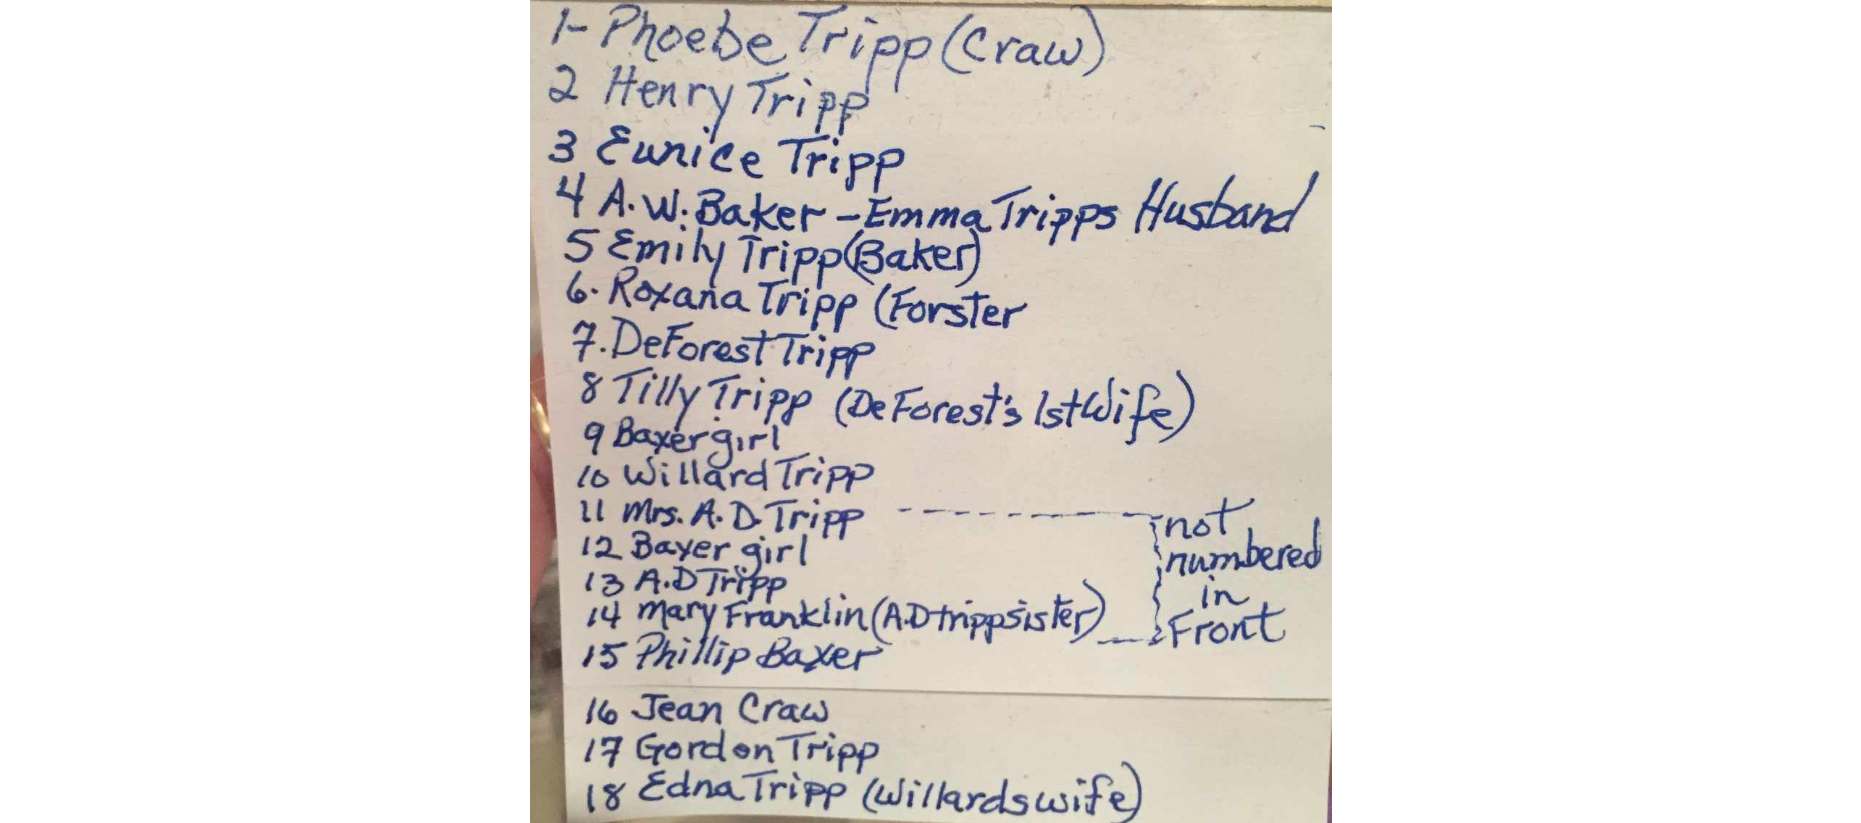 1- Phoebe Tripp (Craw)
2 Henry Tripp
3 Eunice Tripp
4 A. W. Baker - Emma Tripps Husband
5 Emily Tripp (Baker)
6. Roxana Tripp (Forster
7. DeForest Tripp
8 Tilly Tripp (DeForest's 1st Wife)
9 Baxer girl
10 Willard Tripp
11 Mrs. A. D. Tripp
12 Baxer girl
13 A.D Tripp
14 Mary Franklin (A.D tripp sister)
15 Phillip Baxer
not
numbered
in
Front
16 Jean Craw
17 Gordon Tripp
18 Edna Tripp (Willards wife)